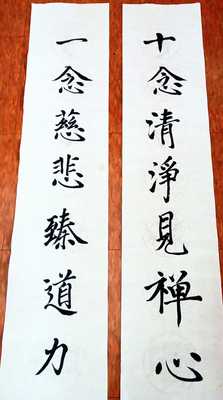 十念清淨見禪心
一念慈悲臻道力